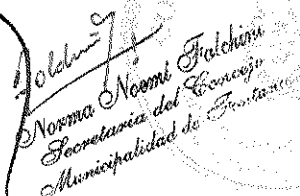 Norma Noemi Falchini
Secretaria del Concejo
Municipalidad de